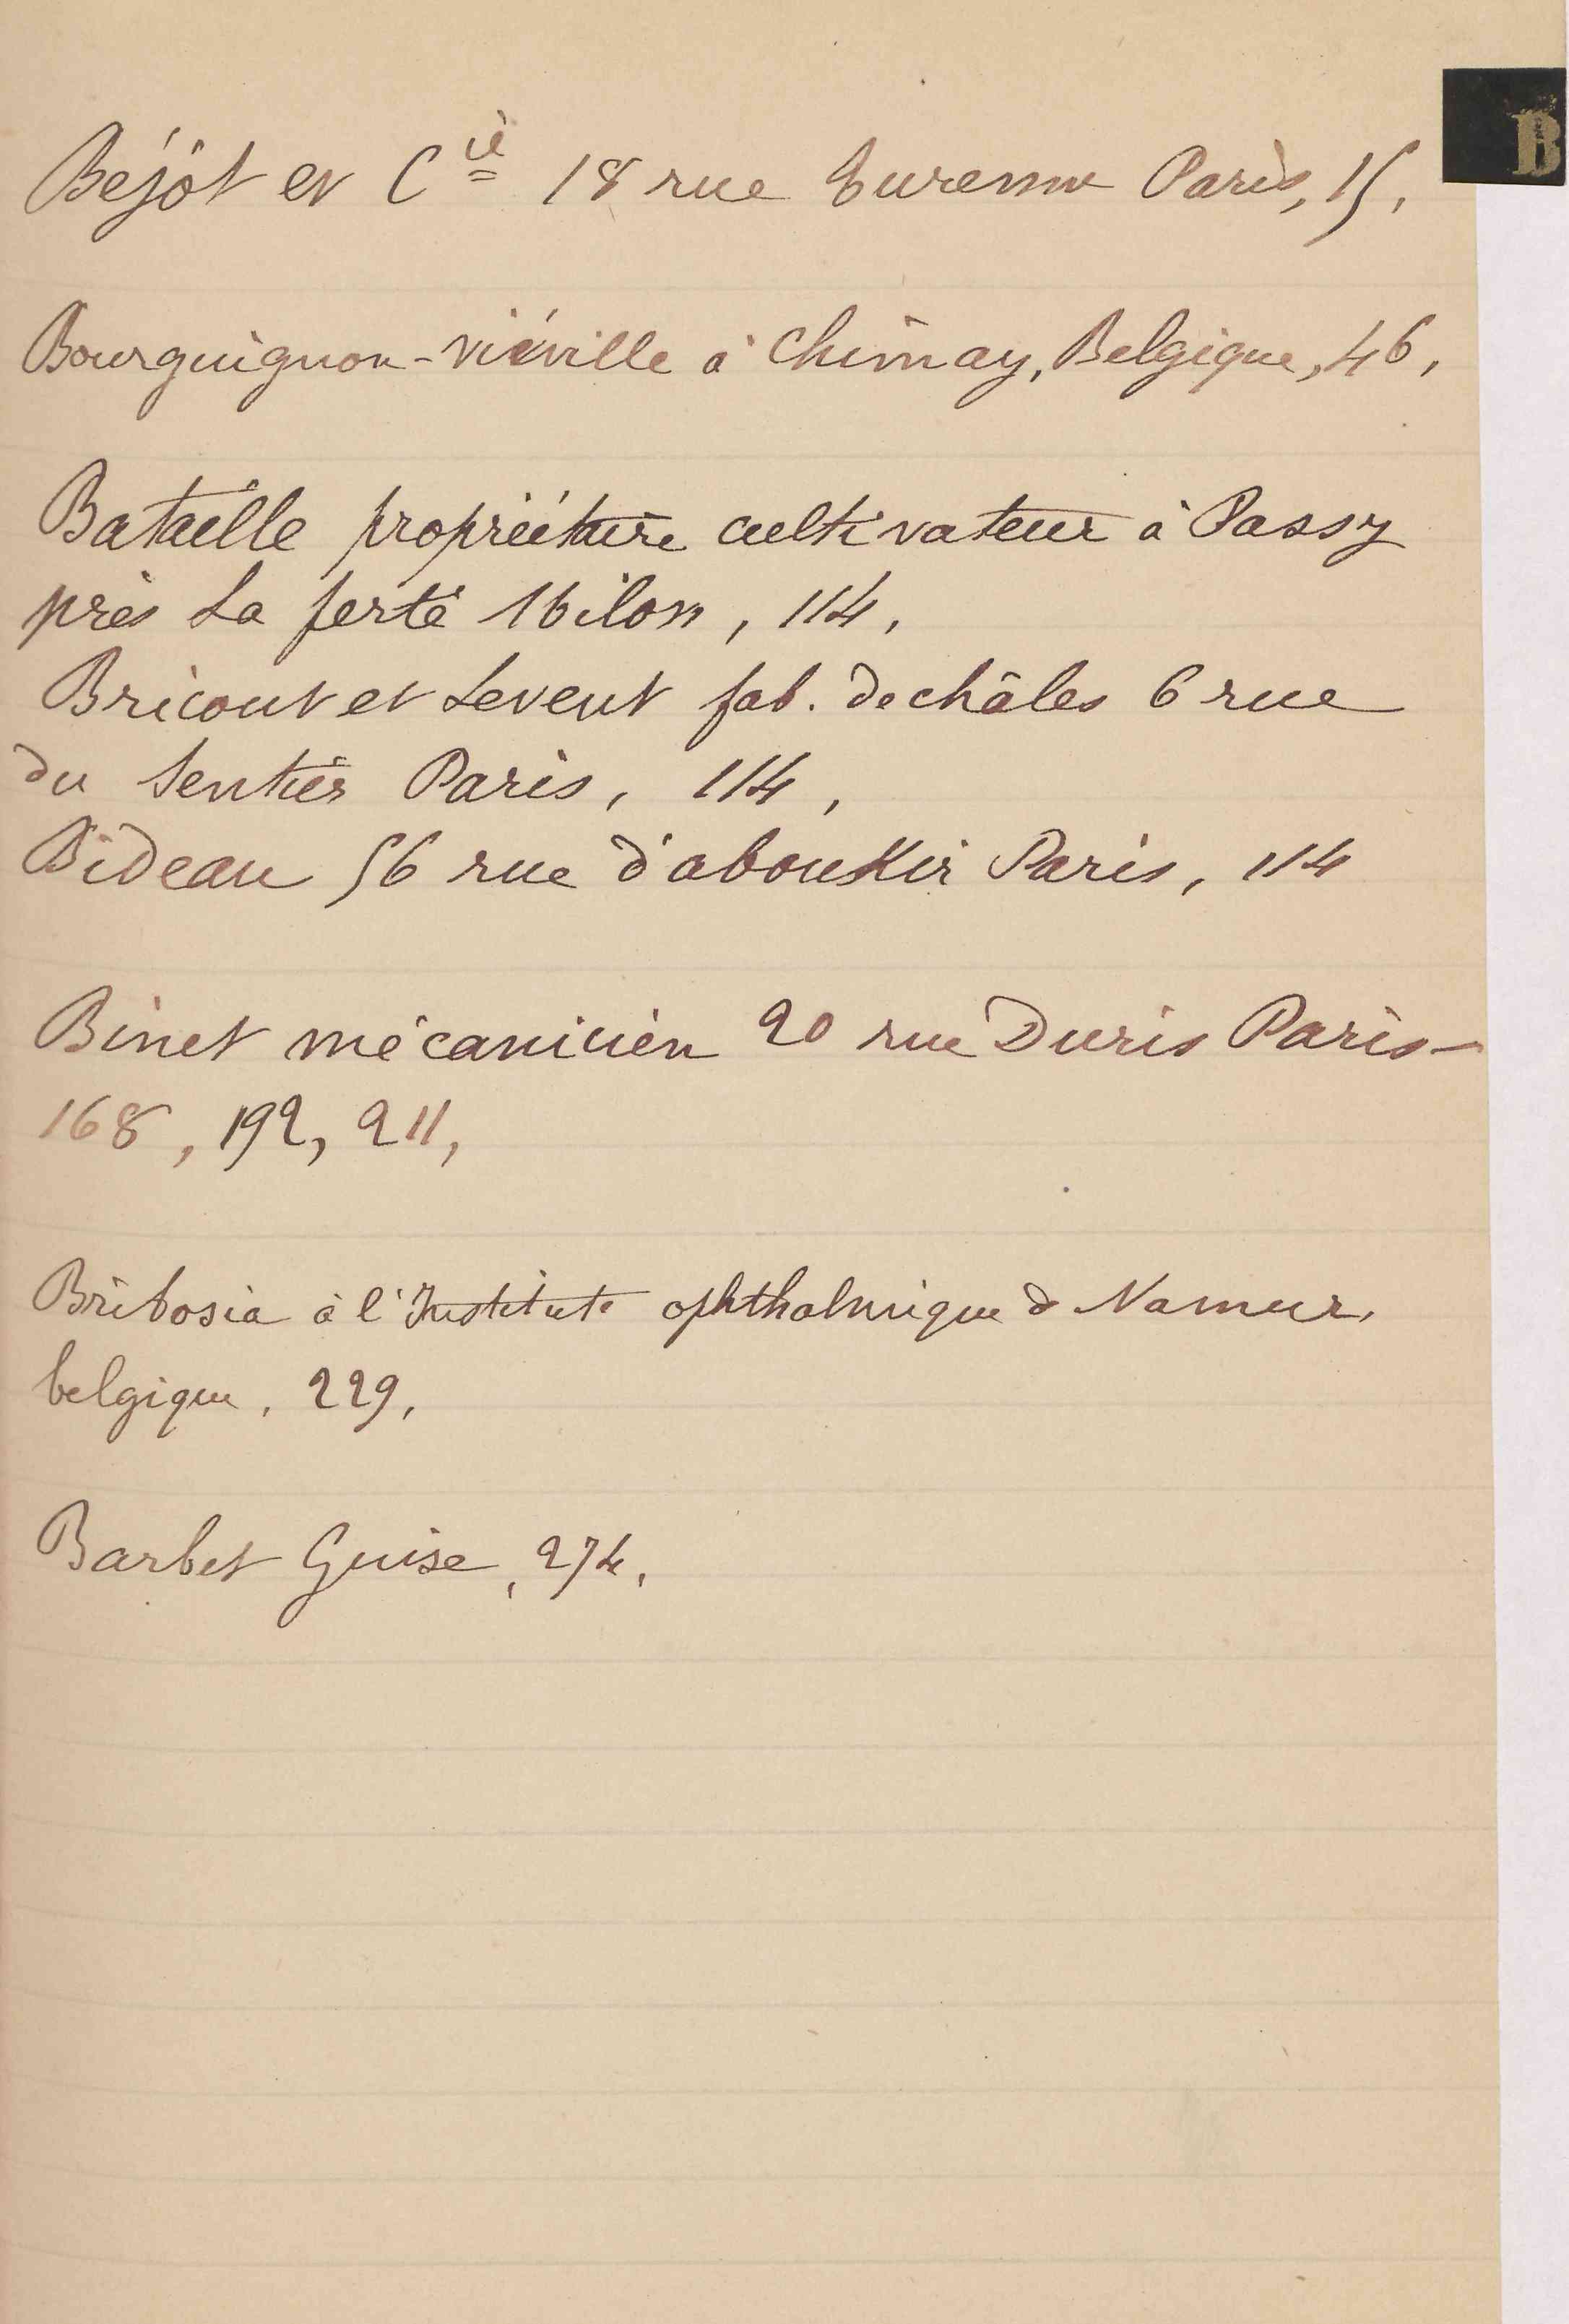 B
Béjot et Cie 18 rue Turenne Paris, 15,
Bourguignon-viéville à Chimay, Belgique, 46,
Bataille propriétaire cultivateur à Passy
près La ferté Milon, 114,
Bricout et Levent fab. de châles 6 rue
du Sentier Paris, 114,
Bideau 56 rue d'aboukir Paris, 114
Binet mécanicien 20 rue Duris Paris -
168, 192, 211,
Bribosia à l'Institute ophthalmique de Namur,
belgique, 229,
Barbet Guise, 274,